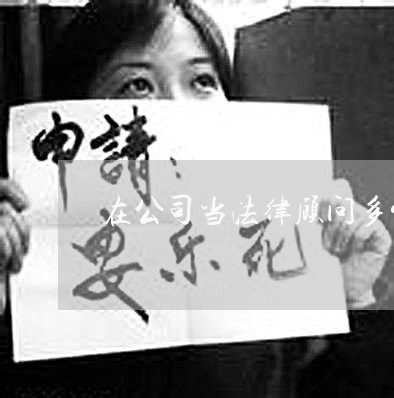 申請：
在公司当法律顾问多
要乐死